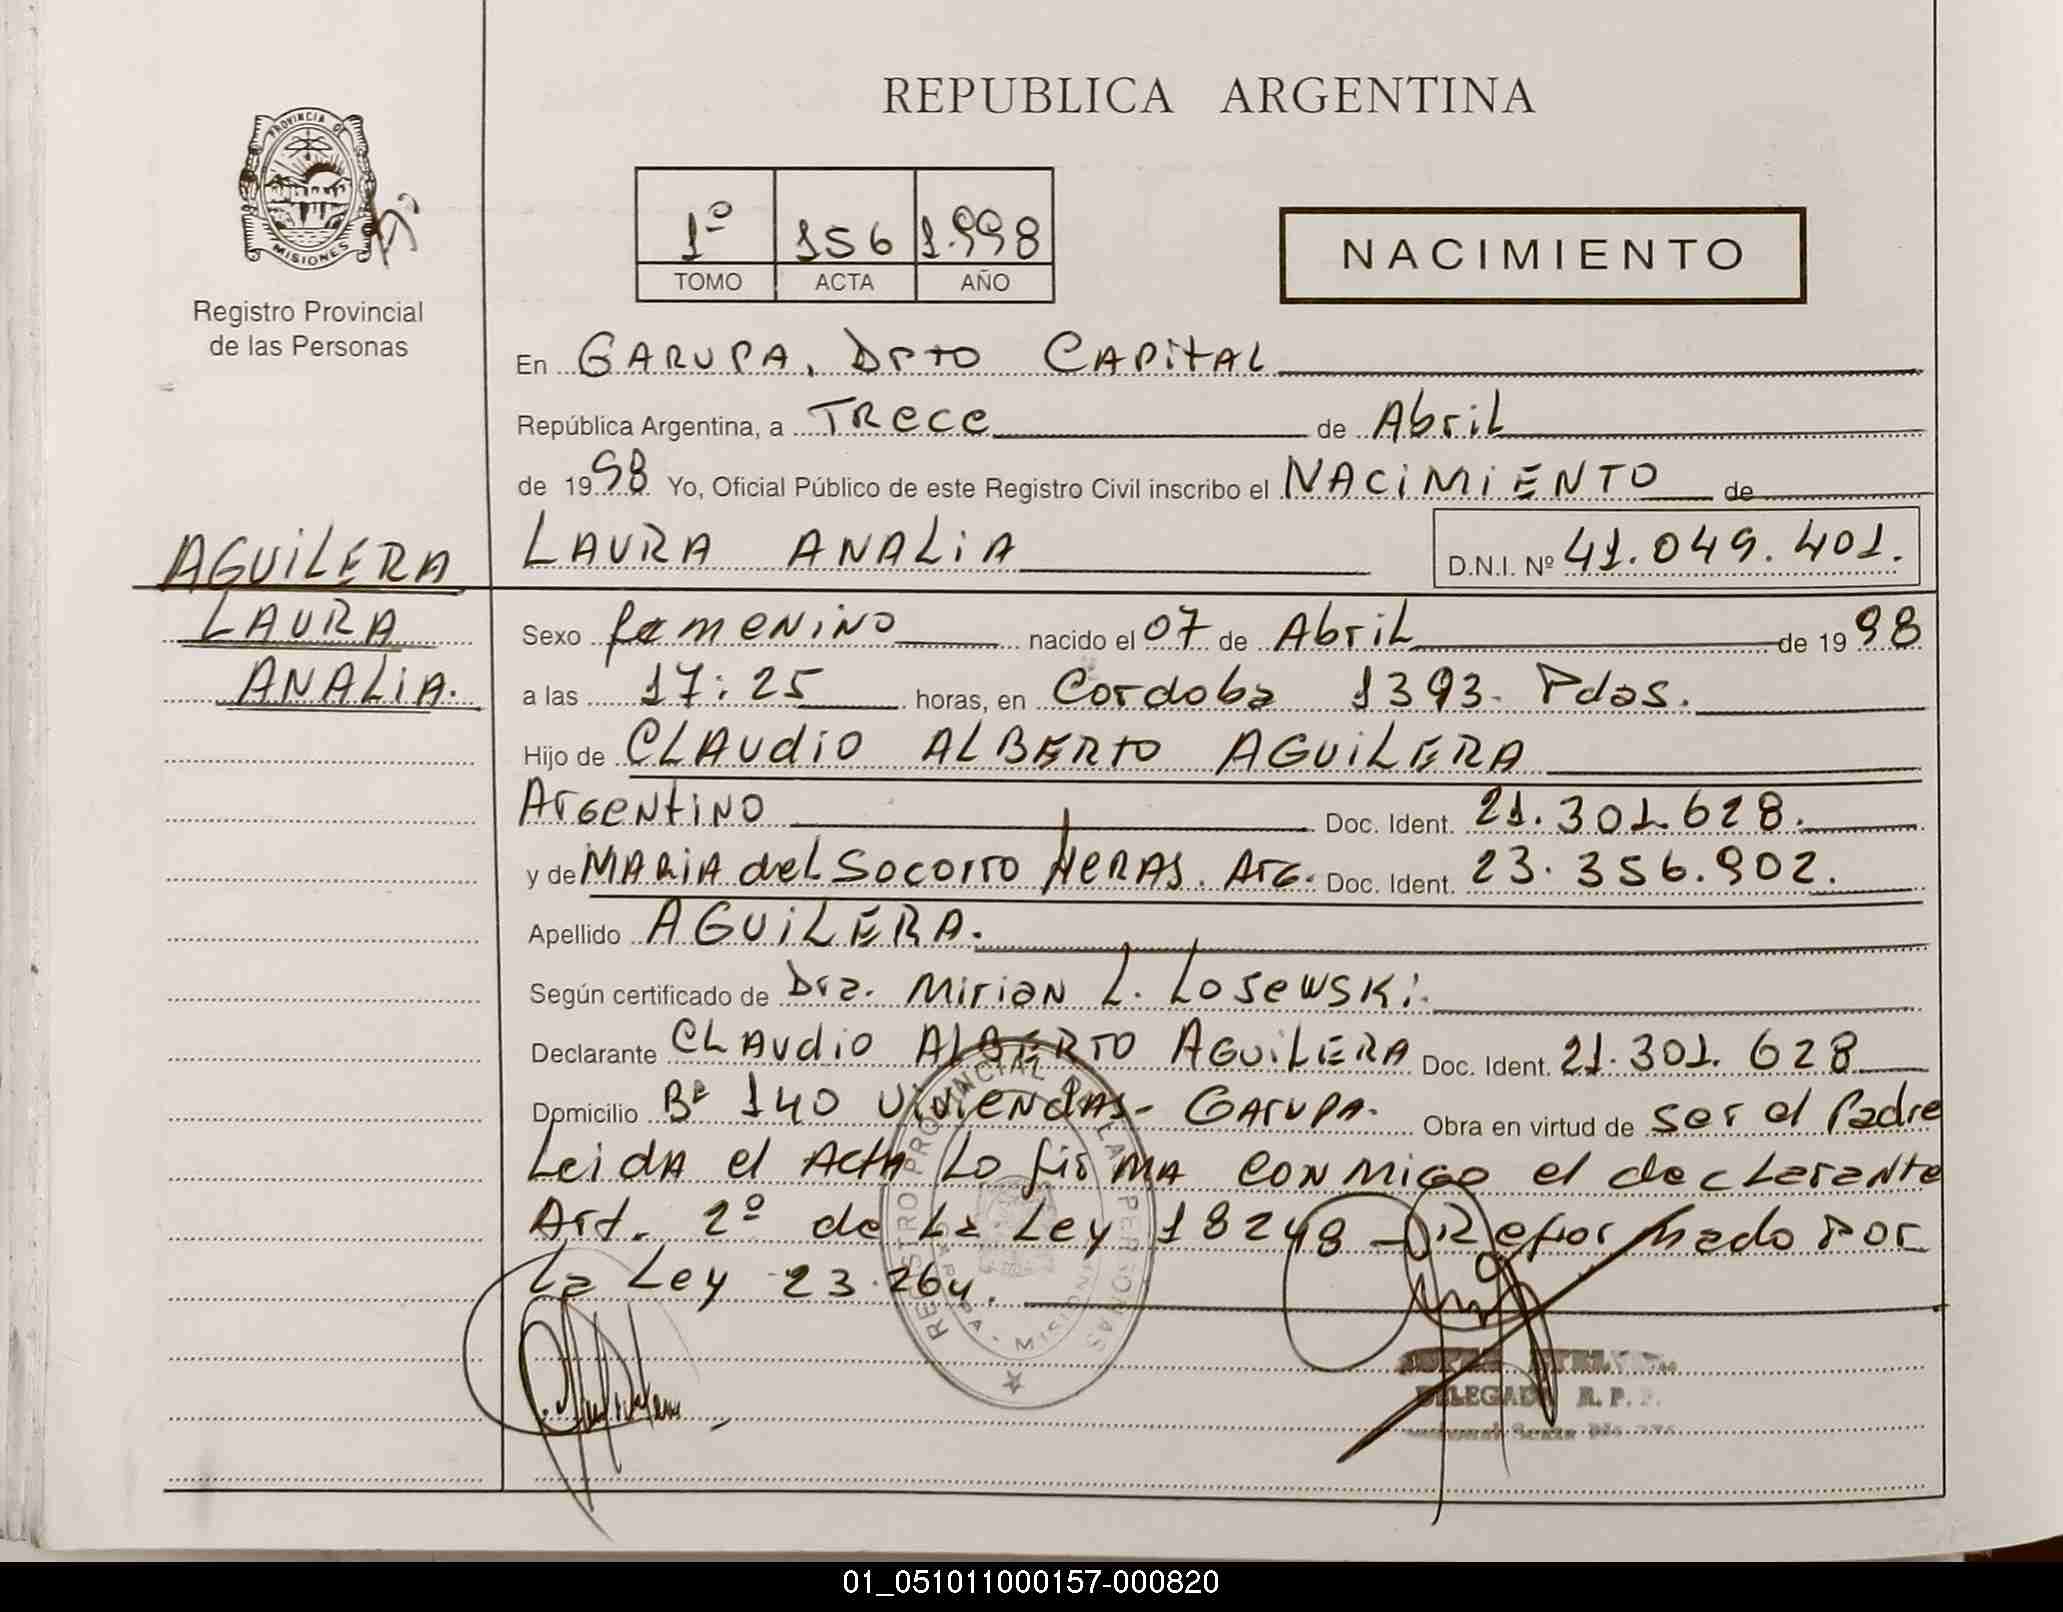 REPUBLICA ARGENTINA
PROVINCIA DE MISIONES
Registro Provincial
de las Personas
1º 156 1.998
TOMO ACTA AÑO
NACIMIENTO
En GARUPA, DPTO CAPITAL
República Argentina, a TRECE de Abril
de 1998 Yo, Oficial Público de este Registro Civil inscribo el NACIMIENTO de
AGUILERA
LAURA
ANALIA.
LAURA ANALIA D.N.I. Nº 41.049.401.
Sexo femenino nacido el 07 de Abril de 1998
a las 17:25 horas, en Cordoba 1393- Pdas.
Hijo de CLAUDIO ALBERTO AGUILERA
Argentino Doc. Ident. 21.301.628.
y de MARIA del SOCORRO HERAS. Arg. Doc. Ident. 23.356.902.
Apellido AGUILERA.
Según certificado de Dra. Mirian L. Losewski.
Declarante CLAUDIO ALBERTO AGUILERA Doc. Ident. 21.301.628
Domicilio Bº 140 Viviendas- GARUPA. Obra en virtud de ser el Padre
Leida el Acta Lo firma conmigo el declarante
Art. 2º de La Ley 18248 - Reformado por
La Ley 23.264.
REGISTRO PROVINCIAL DE LAS PERSONAS
MISIONES
DELEGADA R. P. P.
01_051011000157-000820